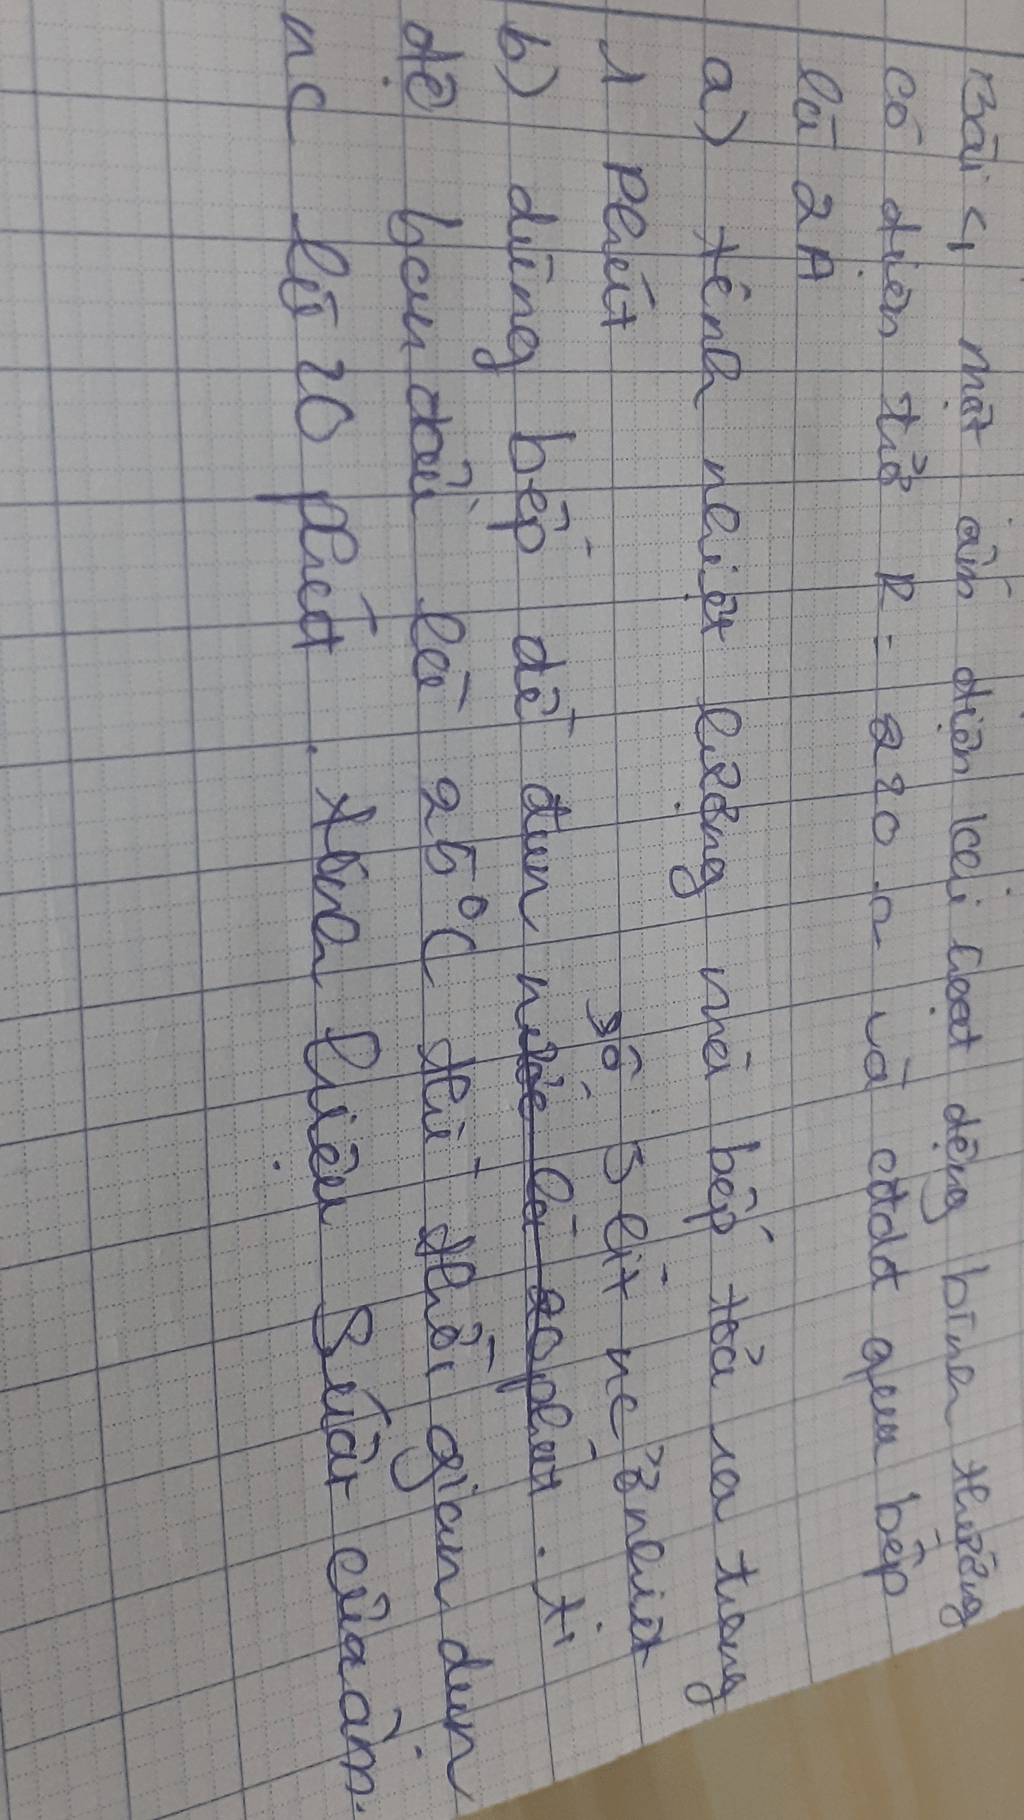 Bài <, một ấm điện khi hoạt động bình thường
có điện trở R = 220 Ω và cđdđ qua bếp
là 2A
a) tính nhiệt lượng mà bếp toả ra trong
1 phút
sôi 3 lít nc ở nhiệt
b) dùng bếp để đun nước là 20 phút. ti
độ ban đầu là 25°C thì thời gian đun
nc là 20 phút. tính hiệu suất của ấm.